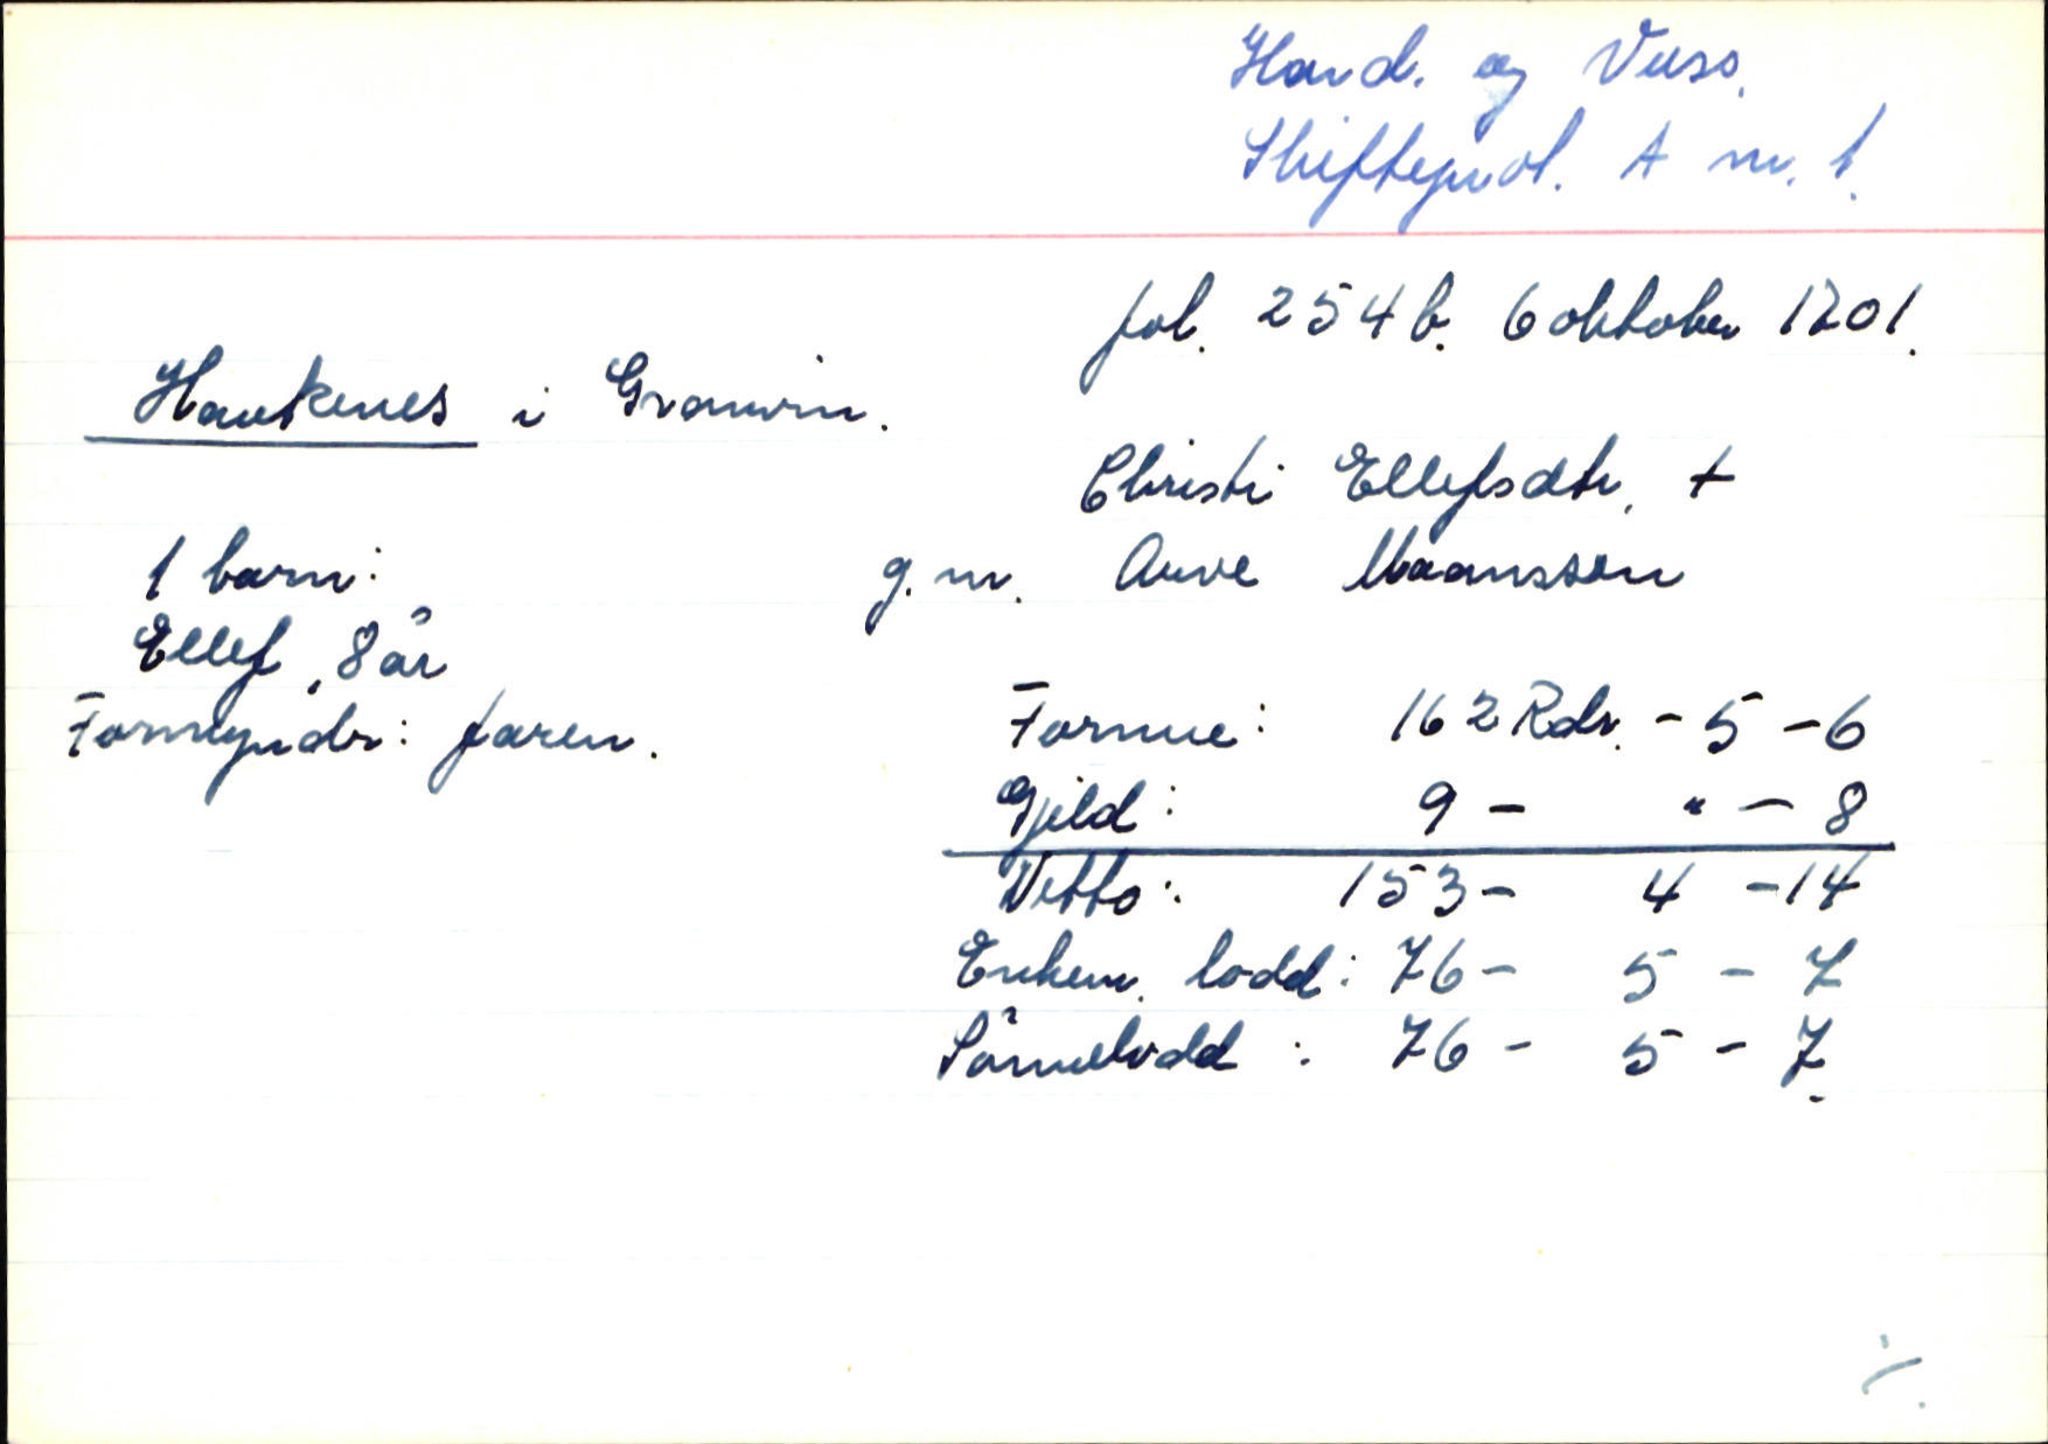 Hard. og Voss.
Skifteprot. A nr. 1.
fol. 254 b. 6 oktober 1701.
Haukenes i Graven.
Christi Ellefsdtr. +
1 barn:
g. m. Arve Maansson
Ellef, 8 år
Formyndr: faren.
Formue: 162 Rdr. - 5 - 6
Gjeld: 9 - " - 8
Netto: 153 - 4 - 14
Enkem. lodd: 76 - 5 - 7
Sønnelodd: 76 - 5 - 7